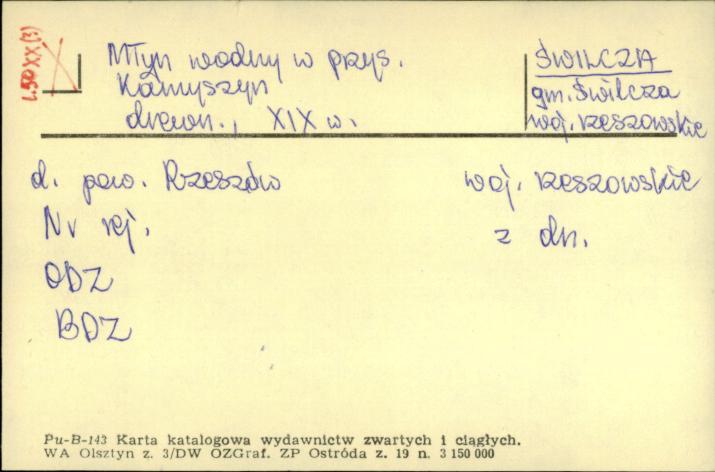 Młyn wodny w przys.
Kamyszyn
drewn., XIX w.
ŚWILCZA
gm. Świlcza
woj. rzeszowskie
d. pow. Rzeszów woj. rzeszowskie
Nr rej. z dn.
ODZ
BDZ
Pu-B-143 Karta katalogowa wydawnictw zwartych i ciągłych.
WA Olsztyn z. 3/DW OZGraf. ZP Ostróda z. 19 n. 3 150 000